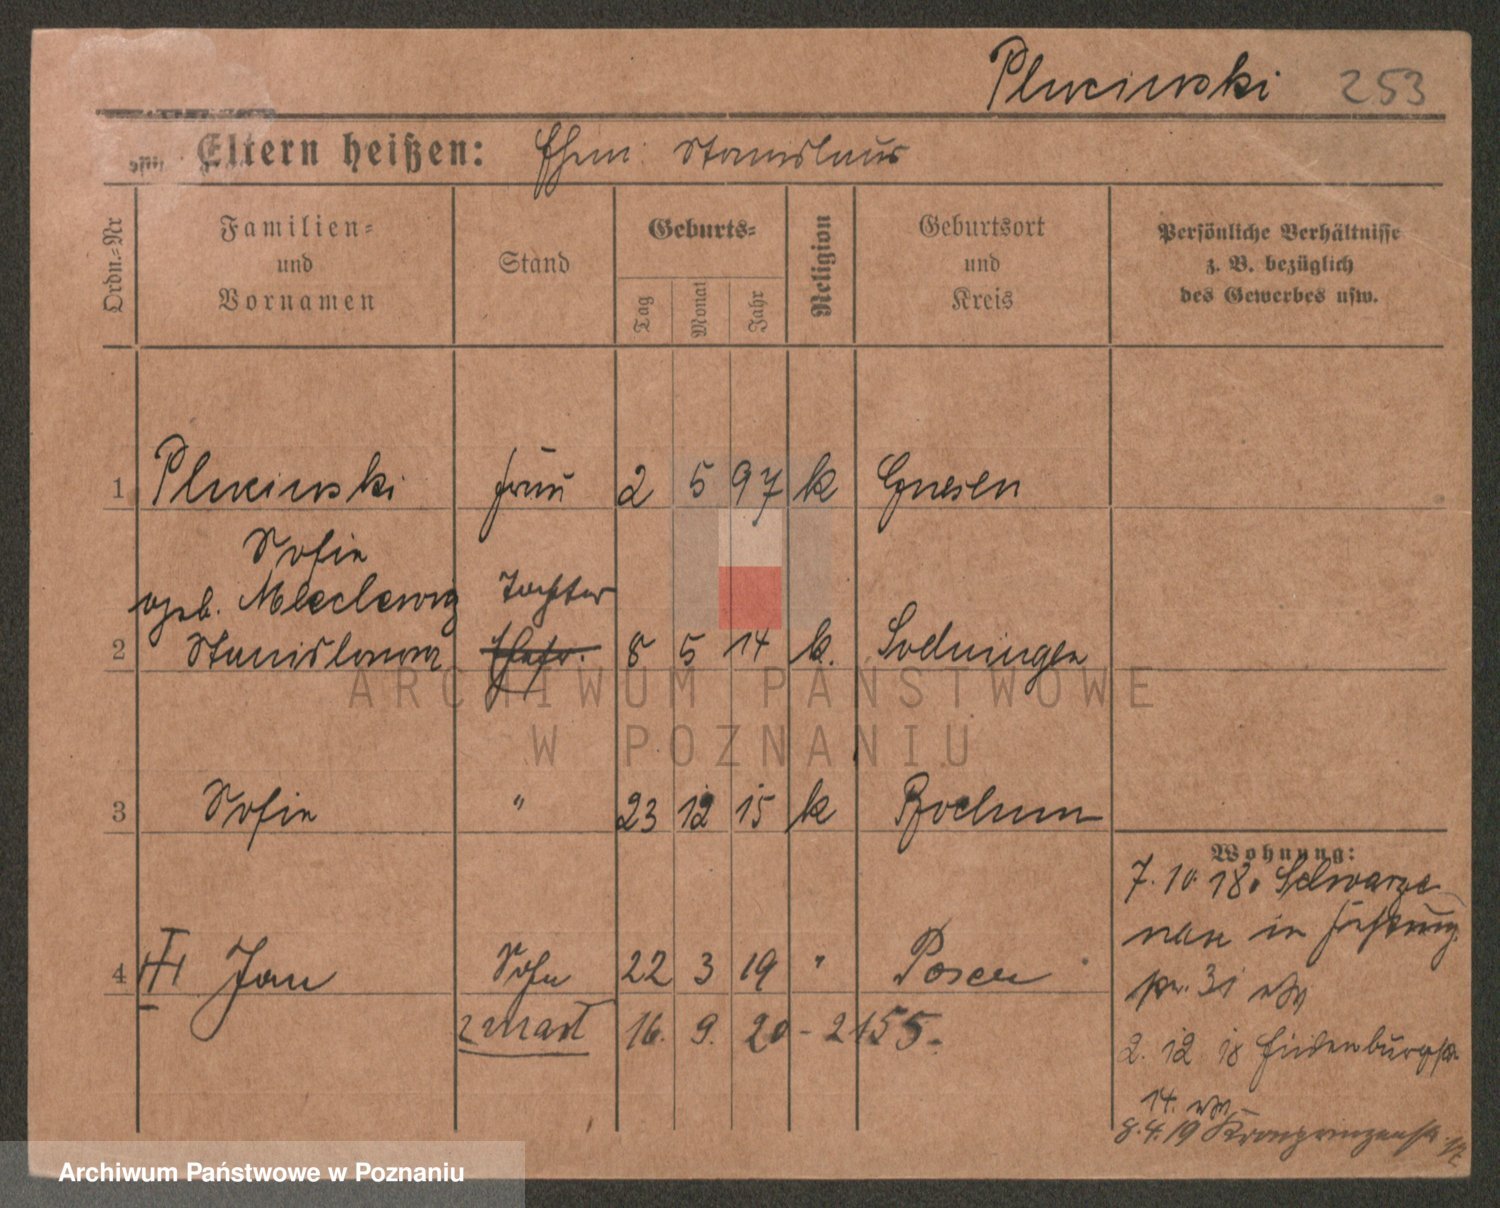 Pluciński 253
Eltern heißen: Ehem: Stanislaus
Ordn.-Nr
Familien-
und
Vornamen
Stand
Geburts-
Tag
Monat
Jahr
Religion
Geburtsort
und
Kreis
Persönliche Verhältnisse
z. B. bezüglich
des Gewerbes usw.
1 Pluciński Frau 2 5 97 k Gnesen
Sofie
geb.
Tochter
2 Stanislawa 8 5 14 k. Sodningen
3 Sofie " 23 12 15 k Bochum
Wohnung:
7. 10. 18.
4 Jan Sohn 22 3 19 " Posen
zmarł 16. 9. 20 - 2155.
2. 12 18
14.
8. 4. 19 Kronprinzenstr.
ARCHIWUM PAŃSTWOWE
W POZNANIU
Archiwum Państwowe w Poznaniu